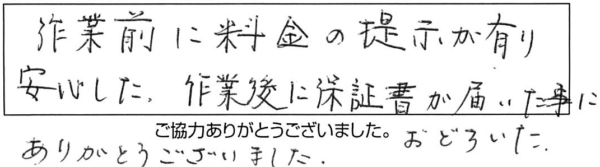 作業前に料金の提示が有り
安心した. 作業後に保証書が届いた事に
ご協力ありがとうございました。 おどろいた.
ありがとうございました.